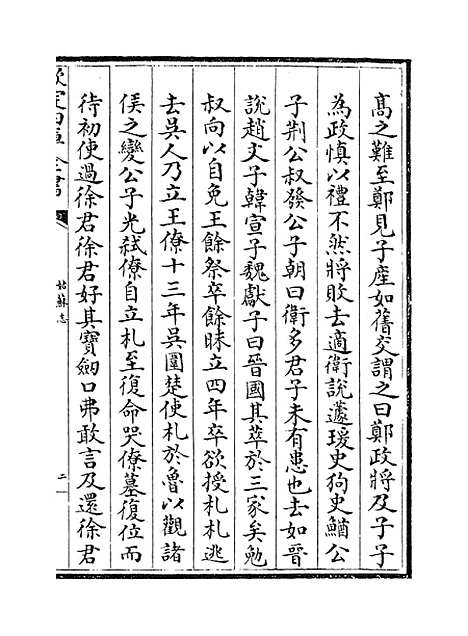 髙之難至鄭見子産如舊交謂之曰鄭政將及子子
為政慎以禮不然將敗去適衛說蘧瑗史狗史鰌公
子荆公叔發公子朝曰衛多君子未有患也去如晉
說趙文子韓宣子魏獻子曰晉國其萃於三家矣勉
叔向以自免王餘祭卒餘昧立四年卒欲授札札逃
去吳人乃立王僚十三年吳圍楚使札於魯以觀諸
侯之變公子光弑僚自立札至復命哭僚墓復位而
待初使過徐君徐君好其寶劒口弗敢言及還徐君
欽定四庫全書
姑蘇志
二